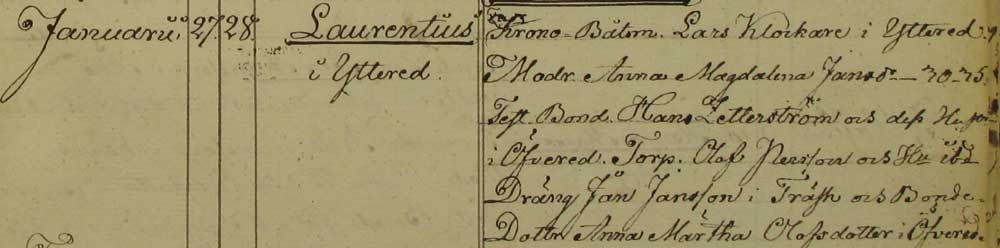 Januarii 27. 28. Laurentius Krono-Båtsm. Lars Klockare i Yttered
i Yttered. Modr. Anna Magdalena Jansdr — 30-35
Test. Bond. Hans Zetterström och dess Hustr
i Öfvered. Torp. Olof Nersson och Hu ibd
Dräng Jan Jansson i Träsk och Bonde-
Dottr Anna Märtha Olofsdotter i Öfvered.